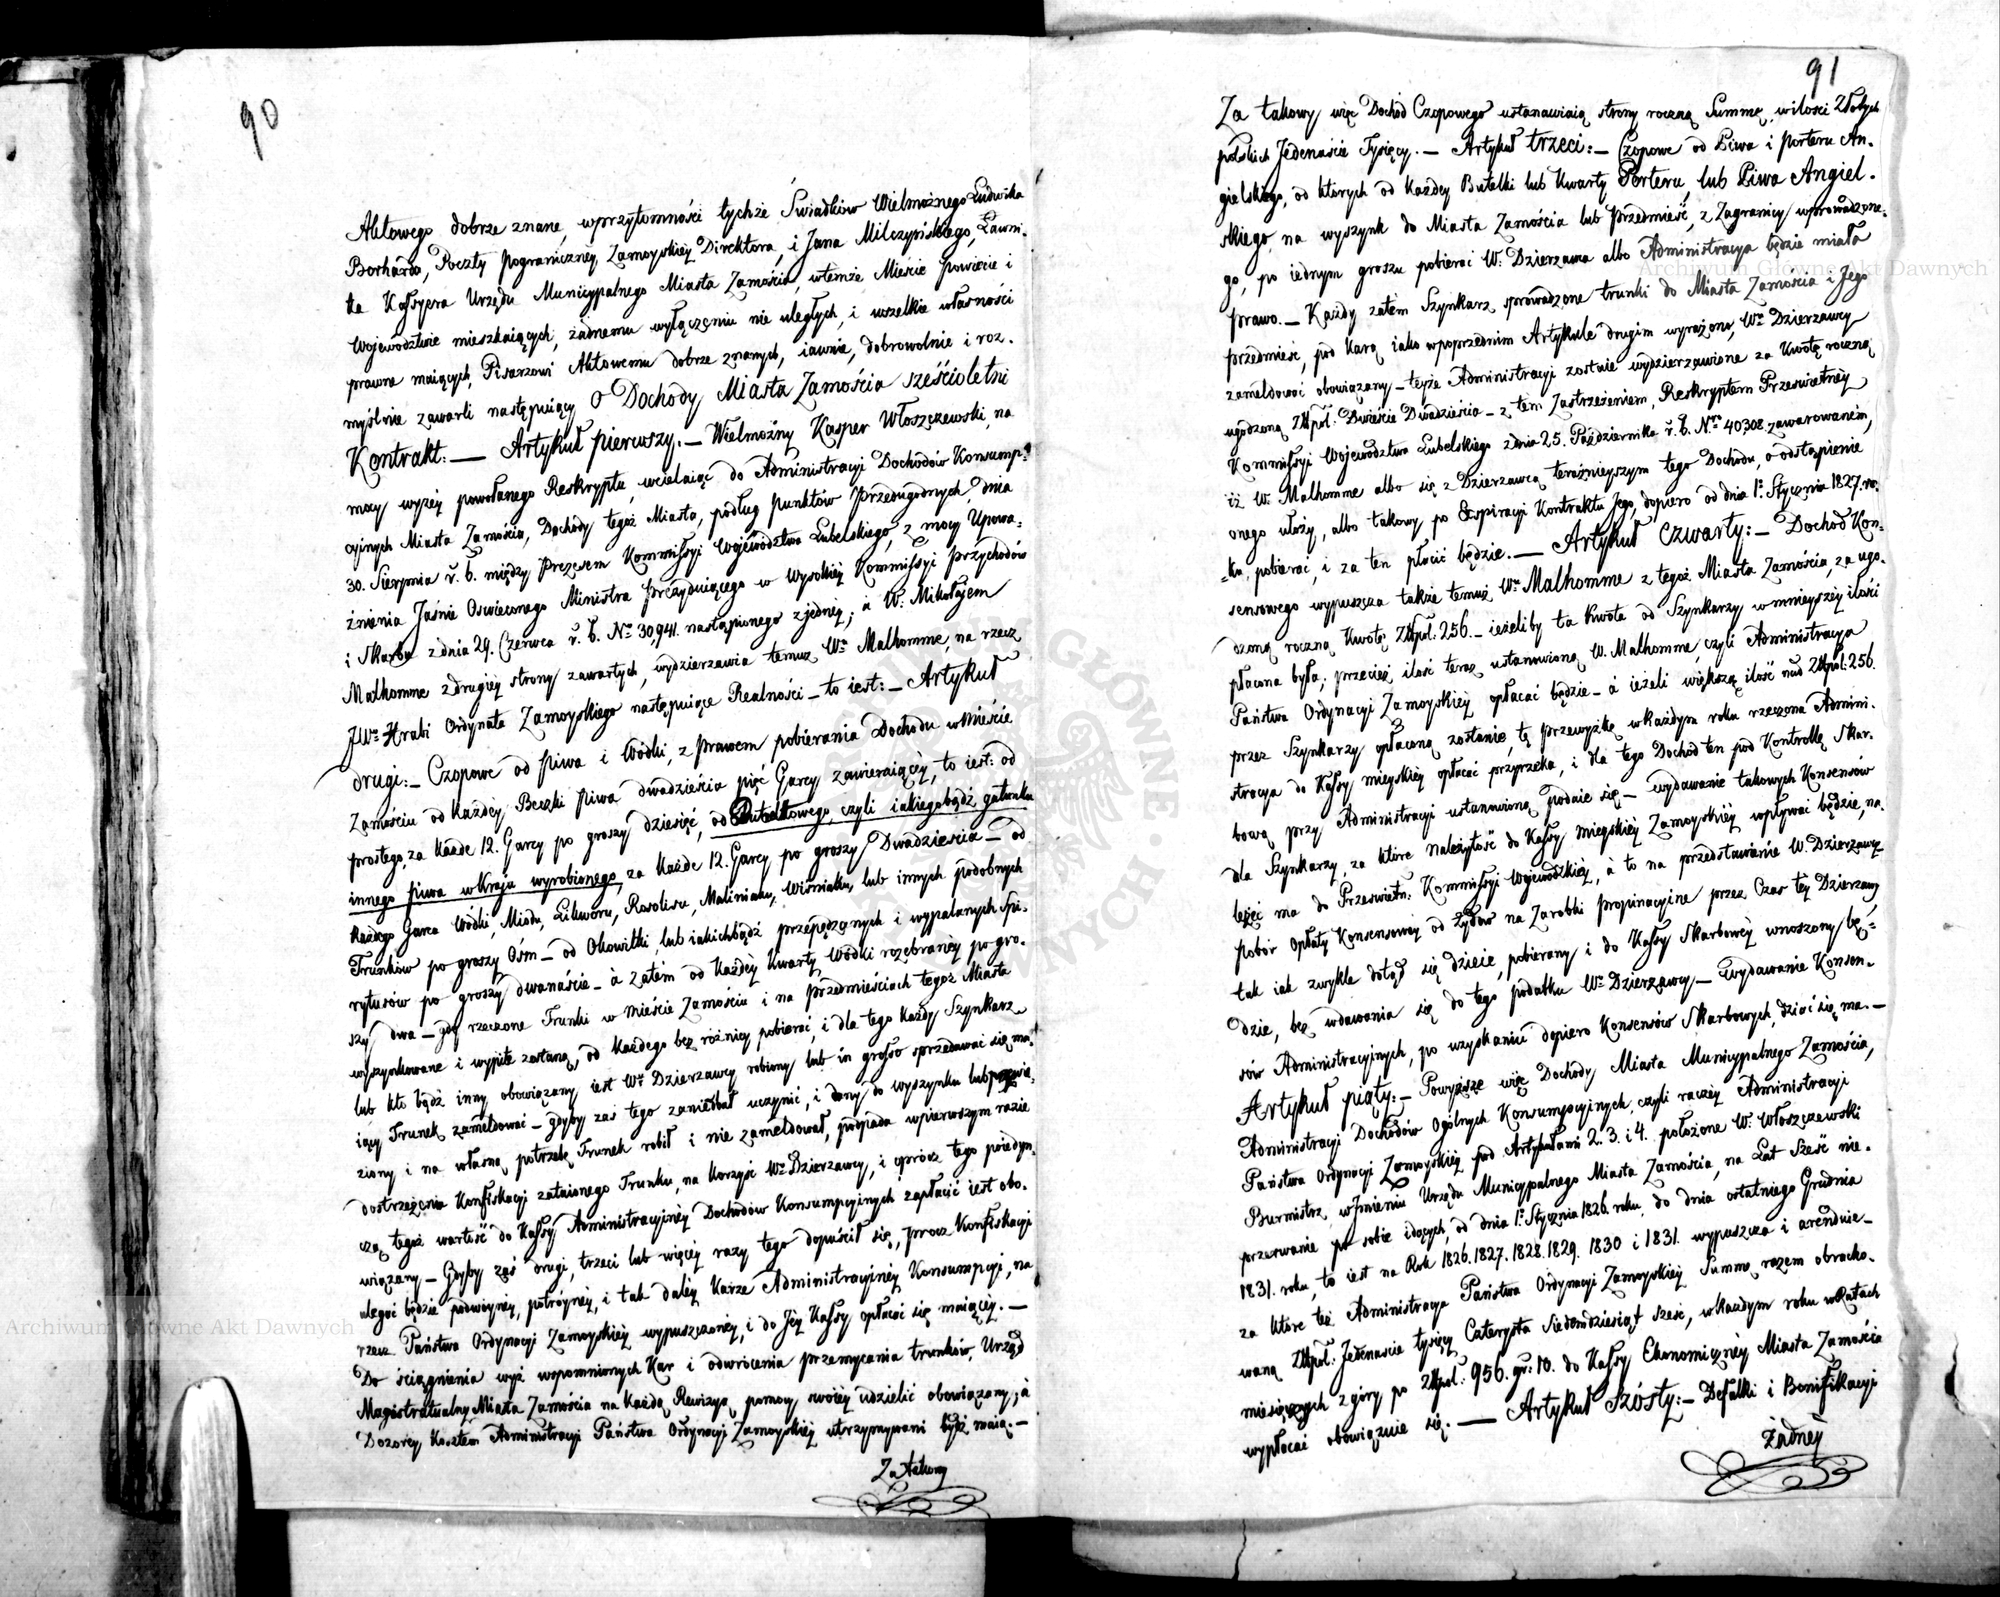 90
Aktowego dobrze znane, wprzytomności tychże Świadków Wielmożnego Ludwika
Borharda, Poczty pograniczney Zamoyskiey Direktora, i Jana Milczyńskiego, Ławni-
ka Kassyera Urzędu Municypalnego Miasta Zamościa, wtemże Mieście Powiecie i
Województwie mieszkaiących, żadnemu wyłączeniu nie uległych, i wszelkie własności
prawne maiących, Pisarzowi Aktowemu dobrze znanych, iawnie, dobrowolnie i roz-
myślnie zawarli następuiący O Dochody Miasta Zamościa sześcioletni
Kontrakt: — Artykuł pierwszy. — Wielmożny Kasper Włoszczewski, na
mocy wyżey powołanego Reskryptu, wcielaiąc do Administracyi Dochodów Konsump-
cyinych Miasta Zamościa, Dochody tegoż Miasta, podług punktów przedugodnych dnia
30. Sierpnia r. b. między Prezesem Kommissyi Województwa Lubelskiego, z mocy Upowa-
żnienia Jaśnie Oświeconego Ministra Prezyduiącego w Wysokiey Kommissyi Przychodów
i Skarbu z dnia 29. Czerwca r. b. No 30,941. nastąpionego z jedney; a W. Mikołajem
Malhomme z drugiey strony zawartych, wydzierzawia temuż Wu Malhomme, na rzecz
JWo Hrabi Ordynata Zamoyskiego następuiące Realności — to iest: — Artykuł
drugi: — Czopowe od piwa i Wódki, z prawem pobierania Dochodu w Mieście
Zamościu od każdey Beczki piwa dwadzieścia pięć Garcy zawieraiącey, to iest: od
prostego, za każde 12. Garcy po groszy dziesięć, od Dubeltowego, czyli iakiegobądź gatunku
innego piwa w Kraju wyrobionego, za każde 12. Garcy po groszy Dwadzieścia — od
każdego Garca Wódki, Miodu, Likworu, Rosolisu, Maliniaku, Wiśniaku, lub innych podobnych
Trunków po groszy Ośm — od Okowitki, lub iakichbądź przepędzanych i wypalanych Spi-
rytusów po groszy dwanaście — a zatem od każdey kwarty Wódki rozebraney po gro-
szy dwa — gdy rzeczone Trunki w Mieście Zamościu i na Przedmieściach tegoż Miasta
wyszynkowane i wypite zostaną, od każdego bez różnicy pobierać, i dla tego każdy Szynkarz
lub kto bądź inny obowiązany iest Wu Dzierzawcy robiony lub in grosso sprzedawać się ma-
iący Trunek zameldować — gdyby zaś tego zaniedbał uczynić, i dany do wyszynku lub
ziony i na własną potrzebę Trunek robił i nie zameldował, podpada wpierwszym razie
dostrzeżenia Konfiskacyi zataionego Trunku, na korzyść Wo Dzierzawcy, i oprócz tego poiedyn-
czą tegoż wartość do Kassy Administracyiney Dochodów Konsumpcyinych zapłacić iest obo-
wiązany — Gdyby zaś drugi, trzeci lub więcey razy tego dopuścił się, prócz Konfiskacyi
ulegać będzie podwóyney, potróyney, i tak daley karze Administracyiney Konsumpcyi, na
rzecz Państwa Ordynacyi Zamoyskiey wypuszczoney, i do Jey Kassy opłacać się maiącey. —
Do ściągnienia wyż wspomnionych Kar i odwrócenia przemycania trunków, Urząd
Magistratualny Miasta Zamościa na każdą Rewizyą pomocy swoiey udzielić obowiązany; a
Dozorcy kosztem Administracyi Państwa Ordynacyi Zamoyskiey utrzymywani bydź maią. —
Za takowy
91
Za takowy więc Dochód Czopowego ustanawiaią strony roczną Summę, wilości Złotych
polskich Jedenaście Tysięcy. — Artykuł trzeci: — Czopowe od Piwa i Porteru An-
gielskiego, od których od każdey Butelki lub Kwarty Porteru, lub Piwa Angiel-
skiego, na wyszynk do Miasta Zamościa lub Przedmieść, z Zagranicy wprowadzone-
go, po iednym groszu pobierać W. Dzierzawca albo Administracya będzie miała
prawo. — Każdy zatem Szynkarz sprowadzone trunki do Miasta Zamościa i Jego
Przedmieść, pod karą iako wpoprzednim Artykule drugim wyrażoną, Wu Dzierzawcy
zameldować obowiązany — teyże Administracyi zostaie wydzierzawione za kwotę roczną
ugodzoną Złłpol: Dwieście Dwadzieścia — z tem Zastrzeżeniem, Reskryptem Prześwietney
Kommissyi Województwa Lubelskiego z dnia 25. Października r. b. Nro 40,308. zawarowanem,
iż W. Malhomme albo się z Dzierzawcą teraźnieyszym tego Dochodu, o odstąpienie
onego ułoży, albo takowy po Exspiracyi Kontraktu Jego, dopiero od dnia 1o Stycznia 1827. ro-
ku, pobierać, i za ten płacić będzie. — Artykuł Czwarty: — Dochód Kon-
sensowego wypuszcza także temuż Wu Malhomme z tegoż Miasta Zamościa, za ugo-
dzoną roczną kwotę Złłpol: 256. — ieżeliby ta kwota od Szynkarzy w mnieyszey ilości
płacona była, przecież ilość teraz ustanowioną W. Malhomme, czyli Administracya
Państwa Ordynacyi Zamoyskiey opłacać będzie — a ieżeli większa ilość nad Złłpol: 256.
przez Szynkarzy opłaconą zostanie, tę przewyżkę w każdym roku rzeczona Admini-
stracya do Kassy mieyskiey opłacać przyrzeka, i dla tego Dochód ten pod Kontrollę Skar-
bową przy Administracyi ustanowioną podaie się — wydawanie takowych Konsensów
dla Szynkarzy, za które należytość do Kassy mieyskiey Zamoyskiey wpływać będzie, na-
leżeć ma do Prześwietn: Kommissyi Wojewódzkiey, a to na przedstawianie W. Dzierzawcy
pobór Opłaty Konsensowey od Żydów na Zarobki propinacyine przez Czas tey Dzierzawy
tak iak zwykle dotąd się dzieie, pobierany i do Kassy Skarbowey wnoszony bę-
dzie, bez wdawania się do tego podatku Wo Dzierzawcy — wydawanie Konsen-
sów Administracyinych, po uzyskaniu dopiero Konsensów Skarbowych, dziać się ma. —
Artykuł piąty: — Powyższe więc Dochody Miasta Municypalnego Zamościa,
Administracyi Dochodów Ogólnych Konsumpcyinych, czyli raczey Administracyi
Państwa Ordynacyi Zamoyskiey pod Artykułami 2. 3. i 4. położone W. Włoszczewski
Burmistrz wJmieniu Urzędu Municypalnego Miasta Zamościa, na Lat Sześć nie-
przerwanie po sobie idących, od dnia 1o Stycznia 1826. roku, do dnia ostatniego Grudnia
1831. roku, to iest na Rok 1826. 1827. 1828. 1829. 1830 i 1831. wypuszcza i arenduie —
za które też Administracya Państwa Ordynacyi Zamoyskiey Summę razem obracho-
waną Złłpol: Jedenaście tysięcy Czterysta Siedemdziesiąt sześć, w każdym roku w Ratach
miesięcznych z góry po Złłpol: 956. gr: 10. do Kassy Ekonomiczney Miasta Zamościa
wypłacać obowiązuie się. — Artykuł Szósty: — Defalki i Bonifikacyi
żadney
Archiwum Główne Akt Dawnych
Archiwum Główne Akt Dawnych